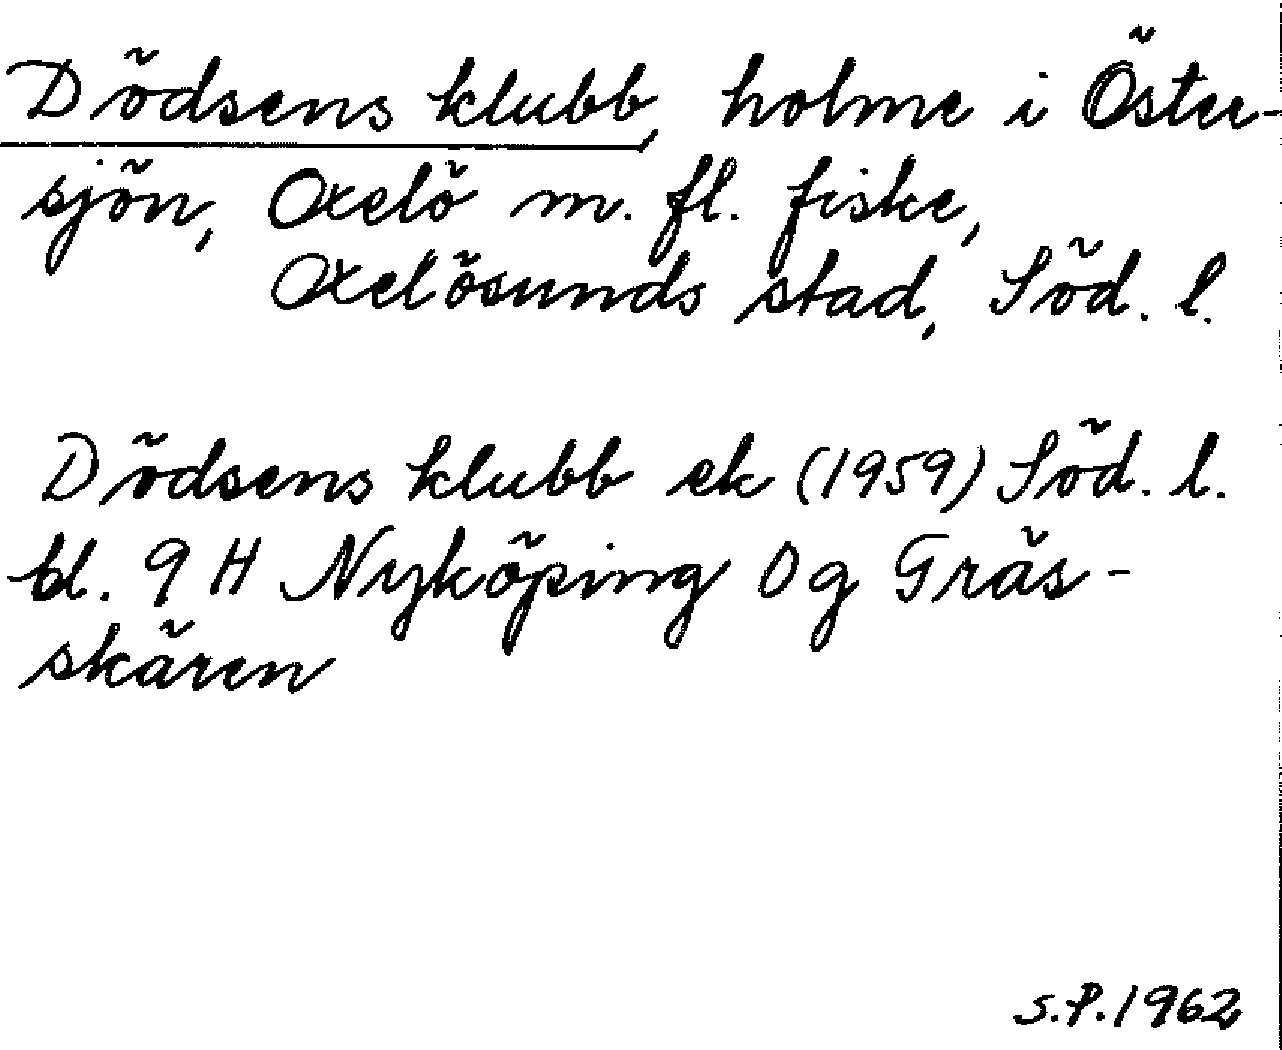 Dödsens klubb, holme i Öster-
sjön, Oxelö m. fl. fiske,
Oxelösunds stad, Söd. l.
Dödsens klubb ek (1959) Söd. l.
bl. 9 H Nyköping Og Gräs-
skären
S.P. 1962